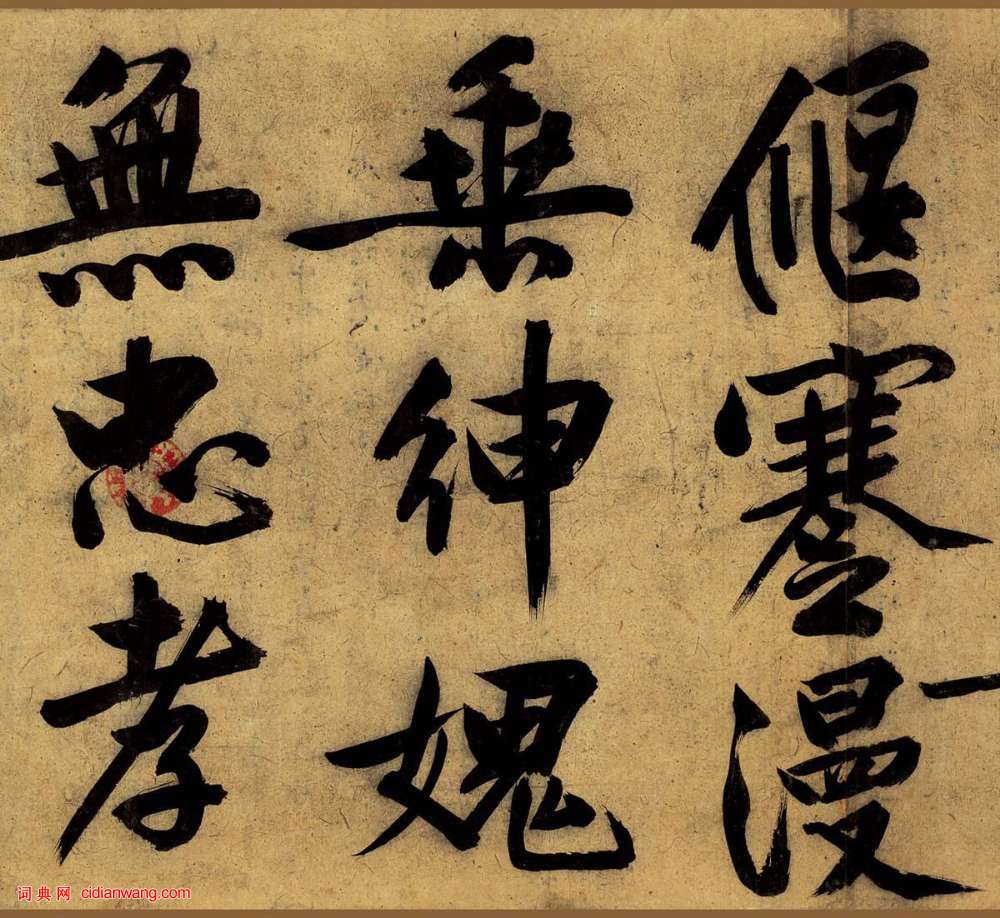 偃蹇漫
垂紳媿
無忠孝
词典网 cidianwang.com